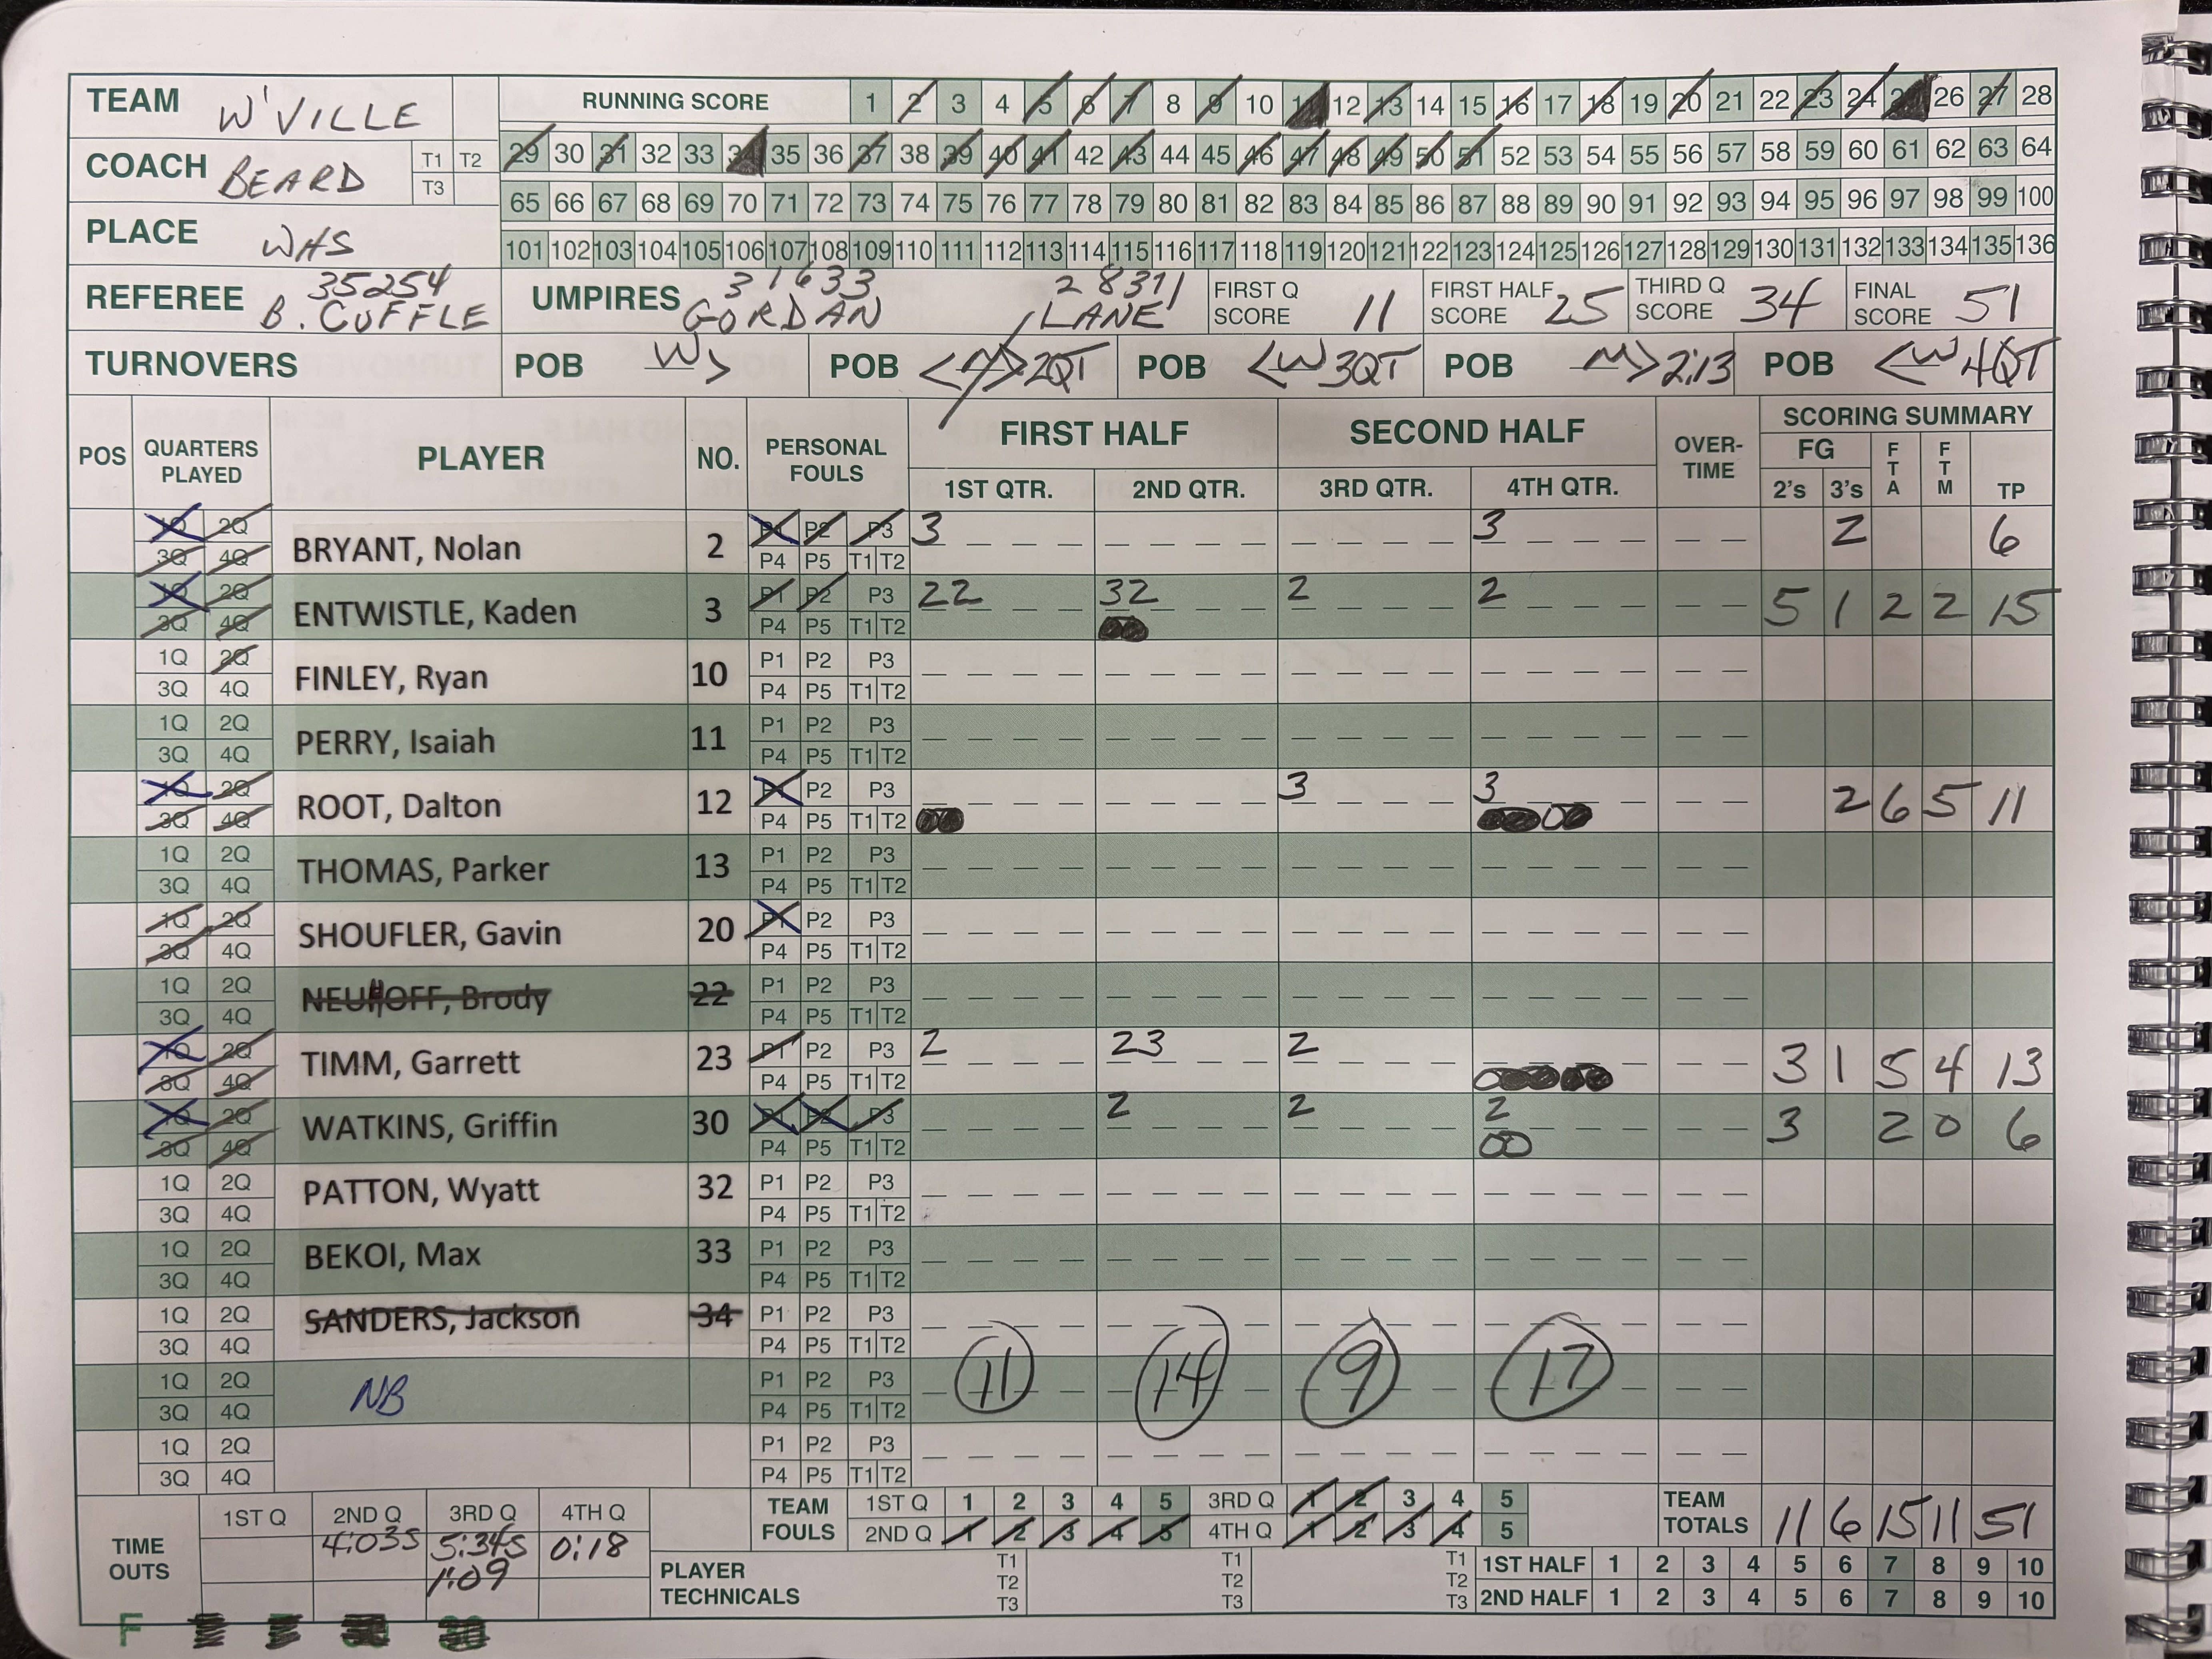 TEAM W'VILLE
RUNNING SCORE 1 2 3 4 5 6 7 8 9 10 11 12 13 14 15 16 17 18 19 20 21 22 23 24 25 26 27 28
29 30 31 32 33 34 35 36 37 38 39 40 41 42 43 44 45 46 47 48 49 50 51 52 53 54 55 56 57 58 59 60 61 62 63 64
COACH BEARD T1 T2 T3
65 66 67 68 69 70 71 72 73 74 75 76 77 78 79 80 81 82 83 84 85 86 87 88 89 90 91 92 93 94 95 96 97 98 99 100
PLACE WHS
101 102 103 104 105 106 107 108 109 110 111 112 113 114 115 116 117 118 119 120 121 122 123 124 125 126 127 128 129 130 131 132 133 134 135 136
REFEREE 35254 B. CUFFLE UMPIRES 31633 GORDAN 28371 LANE FIRST Q SCORE 11 FIRST HALF SCORE 25 THIRD Q SCORE 34 FINAL SCORE 51
TURNOVERS POB W> POB <M>2QT POB <W 3QT POB M> 2:13 POB <W 4QT
POS QUARTERS PLAYED PLAYER NO. PERSONAL FOULS FIRST HALF SECOND HALF OVER-TIME SCORING SUMMARY
1ST QTR. 2ND QTR. 3RD QTR. 4TH QTR. FG 2's 3's FTA FTM TP
1Q 2Q P1 P2 P3 3 3 2 6
BRYANT, Nolan 2
3Q 4Q P4 P5 T1 T2
1Q 2Q P1 P2 P3 22 32 2 2
ENTWISTLE, Kaden 3 5 1 2 2 15
3Q 4Q P4 P5 T1 T2
1Q 2Q P1 P2 P3
FINLEY, Ryan 10
3Q 4Q P4 P5 T1 T2
1Q 2Q P1 P2 P3
PERRY, Isaiah 11
3Q 4Q P4 P5 T1 T2
1Q 2Q P1 P2 P3 3 3
ROOT, Dalton 12 2 6 5 11
3Q 4Q P4 P5 T1 T2
1Q 2Q P1 P2 P3
THOMAS, Parker 13
3Q 4Q P4 P5 T1 T2
1Q 2Q P1 P2 P3
SHOUFLER, Gavin 20
3Q 4Q P4 P5 T1 T2
1Q 2Q P1 P2 P3
NEUHOFF, Brody 22
3Q 4Q P4 P5 T1 T2
1Q 2Q P1 P2 P3 2 23 2
TIMM, Garrett 23 3 1 5 4 13
3Q 4Q P4 P5 T1 T2
1Q 2Q P1 P2 P3 2 2 2
WATKINS, Griffin 30 3 2 0 6
3Q 4Q P4 P5 T1 T2
1Q 2Q P1 P2 P3
PATTON, Wyatt 32
3Q 4Q P4 P5 T1 T2
1Q 2Q P1 P2 P3
BEKOI, Max 33
3Q 4Q P4 P5 T1 T2
1Q 2Q P1 P2 P3
SANDERS, Jackson 34
3Q 4Q P4 P5 T1 T2
1Q 2Q P1 P2 P3
NB 11 14 9 17
3Q 4Q P4 P5 T1 T2
1Q 2Q P1 P2 P3
3Q 4Q P4 P5 T1 T2
TIME OUTS 1ST Q 2ND Q 3RD Q 4TH Q
4:03S 5:34S 0:18
1:09
TEAM FOULS 1ST Q 1 2 3 4 5 3RD Q 1 2 3 4 5
2ND Q 1 2 3 4 5 4TH Q 1 2 3 4 5
TEAM TOTALS 11 6 15 11 51
PLAYER TECHNICALS T1 T2 T3 T1 T2 T3 T1 T2 T3
1ST HALF 1 2 3 4 5 6 7 8 9 10
2ND HALF 1 2 3 4 5 6 7 8 9 10
F 30